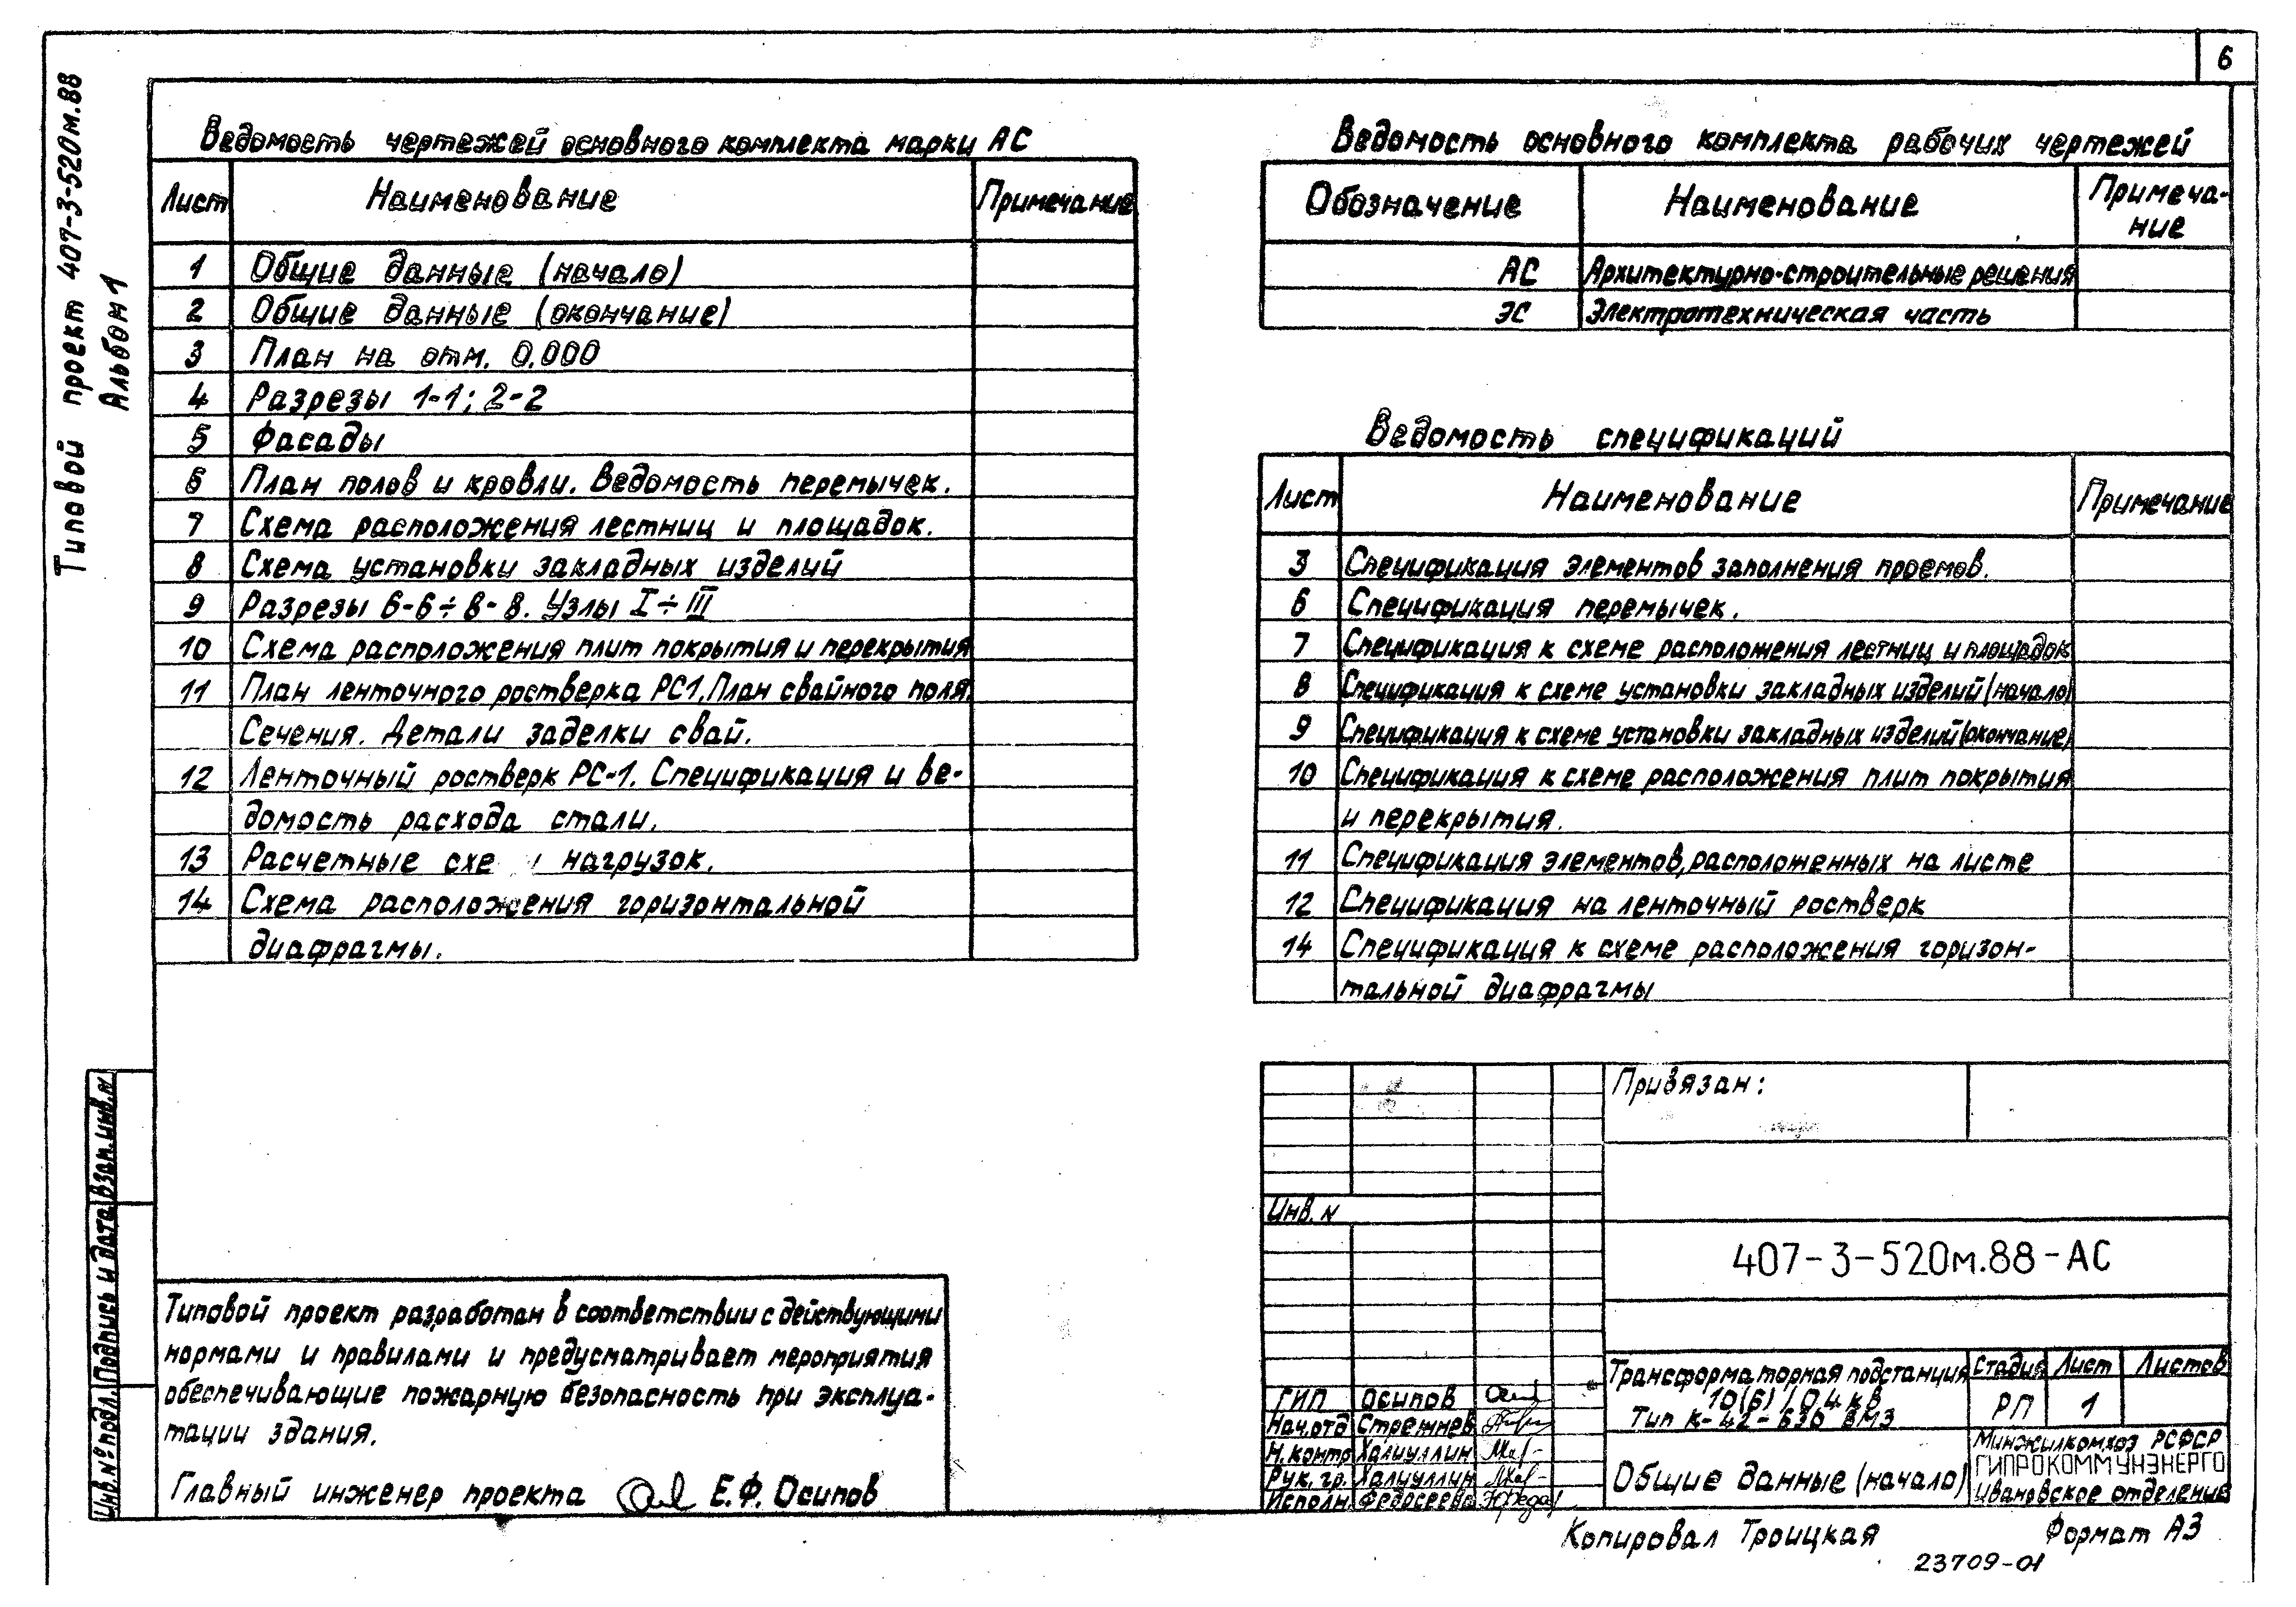 6
Типовой проект 407-3-520м.88
Альбом 1
Ведомость чертежей основного комплекта марки АС
Лист Наименование Примечание
1 Общие данные (начало)
2 Общие данные (окончание)
3 План на отм. 0.000
4 Разрезы 1-1; 2-2
5 Фасады
6 План полов и кровли. Ведомость перемычек.
7 Схема расположения лестниц и площадок.
8 Схема установки закладных изделий
9 Разрезы 6-6÷8-8. Узлы I÷III
10 Схема расположения плит покрытия и перекрытия
11 План ленточного ростверка РС1. План свайного поля.
Сечения. Детали заделки свай.
12 Ленточный ростверк РС-1. Спецификация и ве-
домость расхода стали.
13 Расчетные нагрузок.
14 Схема расположения горизонтальной
диафрагмы.
Ведомость основного комплекта рабочих чертежей
Обозначение Наименование Примеча-
ние
АС Архитектурно-строительные решения
ЭС Электротехническая часть
Ведомость спецификаций
Лист Наименование Примечание
3 Спецификация элементов заполнения проемов.
6 Спецификация перемычек.
7 Спецификация к схеме расположения лестниц и площадок
8 Спецификация к схеме установки закладных изделий (начало)
9 Спецификация к схеме установки закладных изделий (окончание)
10 Спецификация к схеме расположения плит покрытия
и перекрытия.
11 Спецификация элементов, расположенных на листе
12 Спецификация на ленточный ростверк
14 Спецификация к схеме расположения горизон-
тальной диафрагмы
Типовой проект разработан в соответствии с действующими
нормами и правилами и предусматривает мероприятия
обеспечивающие пожарную безопасность при эксплуа-
тации здания.
Главный инженер проекта Е.Ф. Осипов
Инв.№ подл. Подпись и дата Взам.инв.№
Привязан:
Инв. №
407-3-520м.88-АС
ГИП Осипов
Нач.отд Стрежнев
Н.контр Халиуллин
Рук. гр. Халиуллин
Исполн Федосеева
Трансформаторная подстанция
10(6)/0,4 кВ
Тип К-42-630 ВМ3
Стадия Лист Листов
РП 1
Общие данные (начало)
Минжилкомхоз РСФСР
ГИПРОКОММУНЭНЕРГО
Ивановское отделение
Копировал Троицкая Формат А3
23709-01